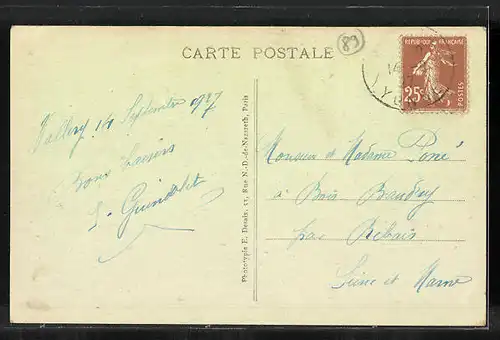 CARTE POSTALE
89
REPUBLIQUE FRANÇAISE
25c
POSTES
14
Vallery 14 Septembre 1927
Bons baisers
Phototypie E. Desaix, 51, Rue N.-D.-de-Nazareth, Paris
Monsieur et Madame Poné
à Bois Baudry
par Rebais
Seine et Marne